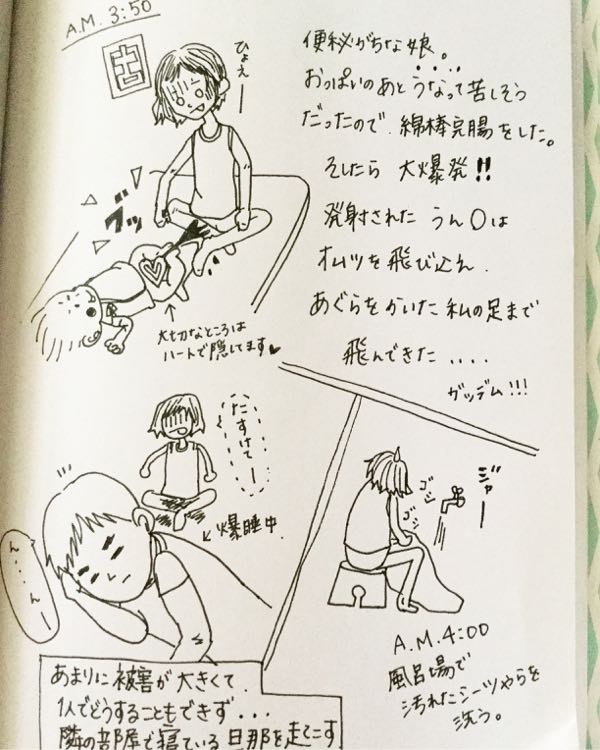 A.M. 3:50
ひょえー
便秘がちな娘。
おっぱいのあとうなって苦しそう
だったので、綿棒完腸をした。
そしたら 大爆発!!
発射された うん〇は
オムツを飛び込え、
あぐらをかいた私の足まで
飛んできた....
ガッデム!!!
ブッ
大切なところは
ハートで隠してます♥
たすけてー
爆睡中
ん....んー
ジャー
ゴシ
ゴシ
A.M.4:00
風呂場で
汚れたシーツやらを
洗う。
あまりに被害が大きくて、
1人でどうすることもできず...
隣の部屋で寝ている旦那を起こす